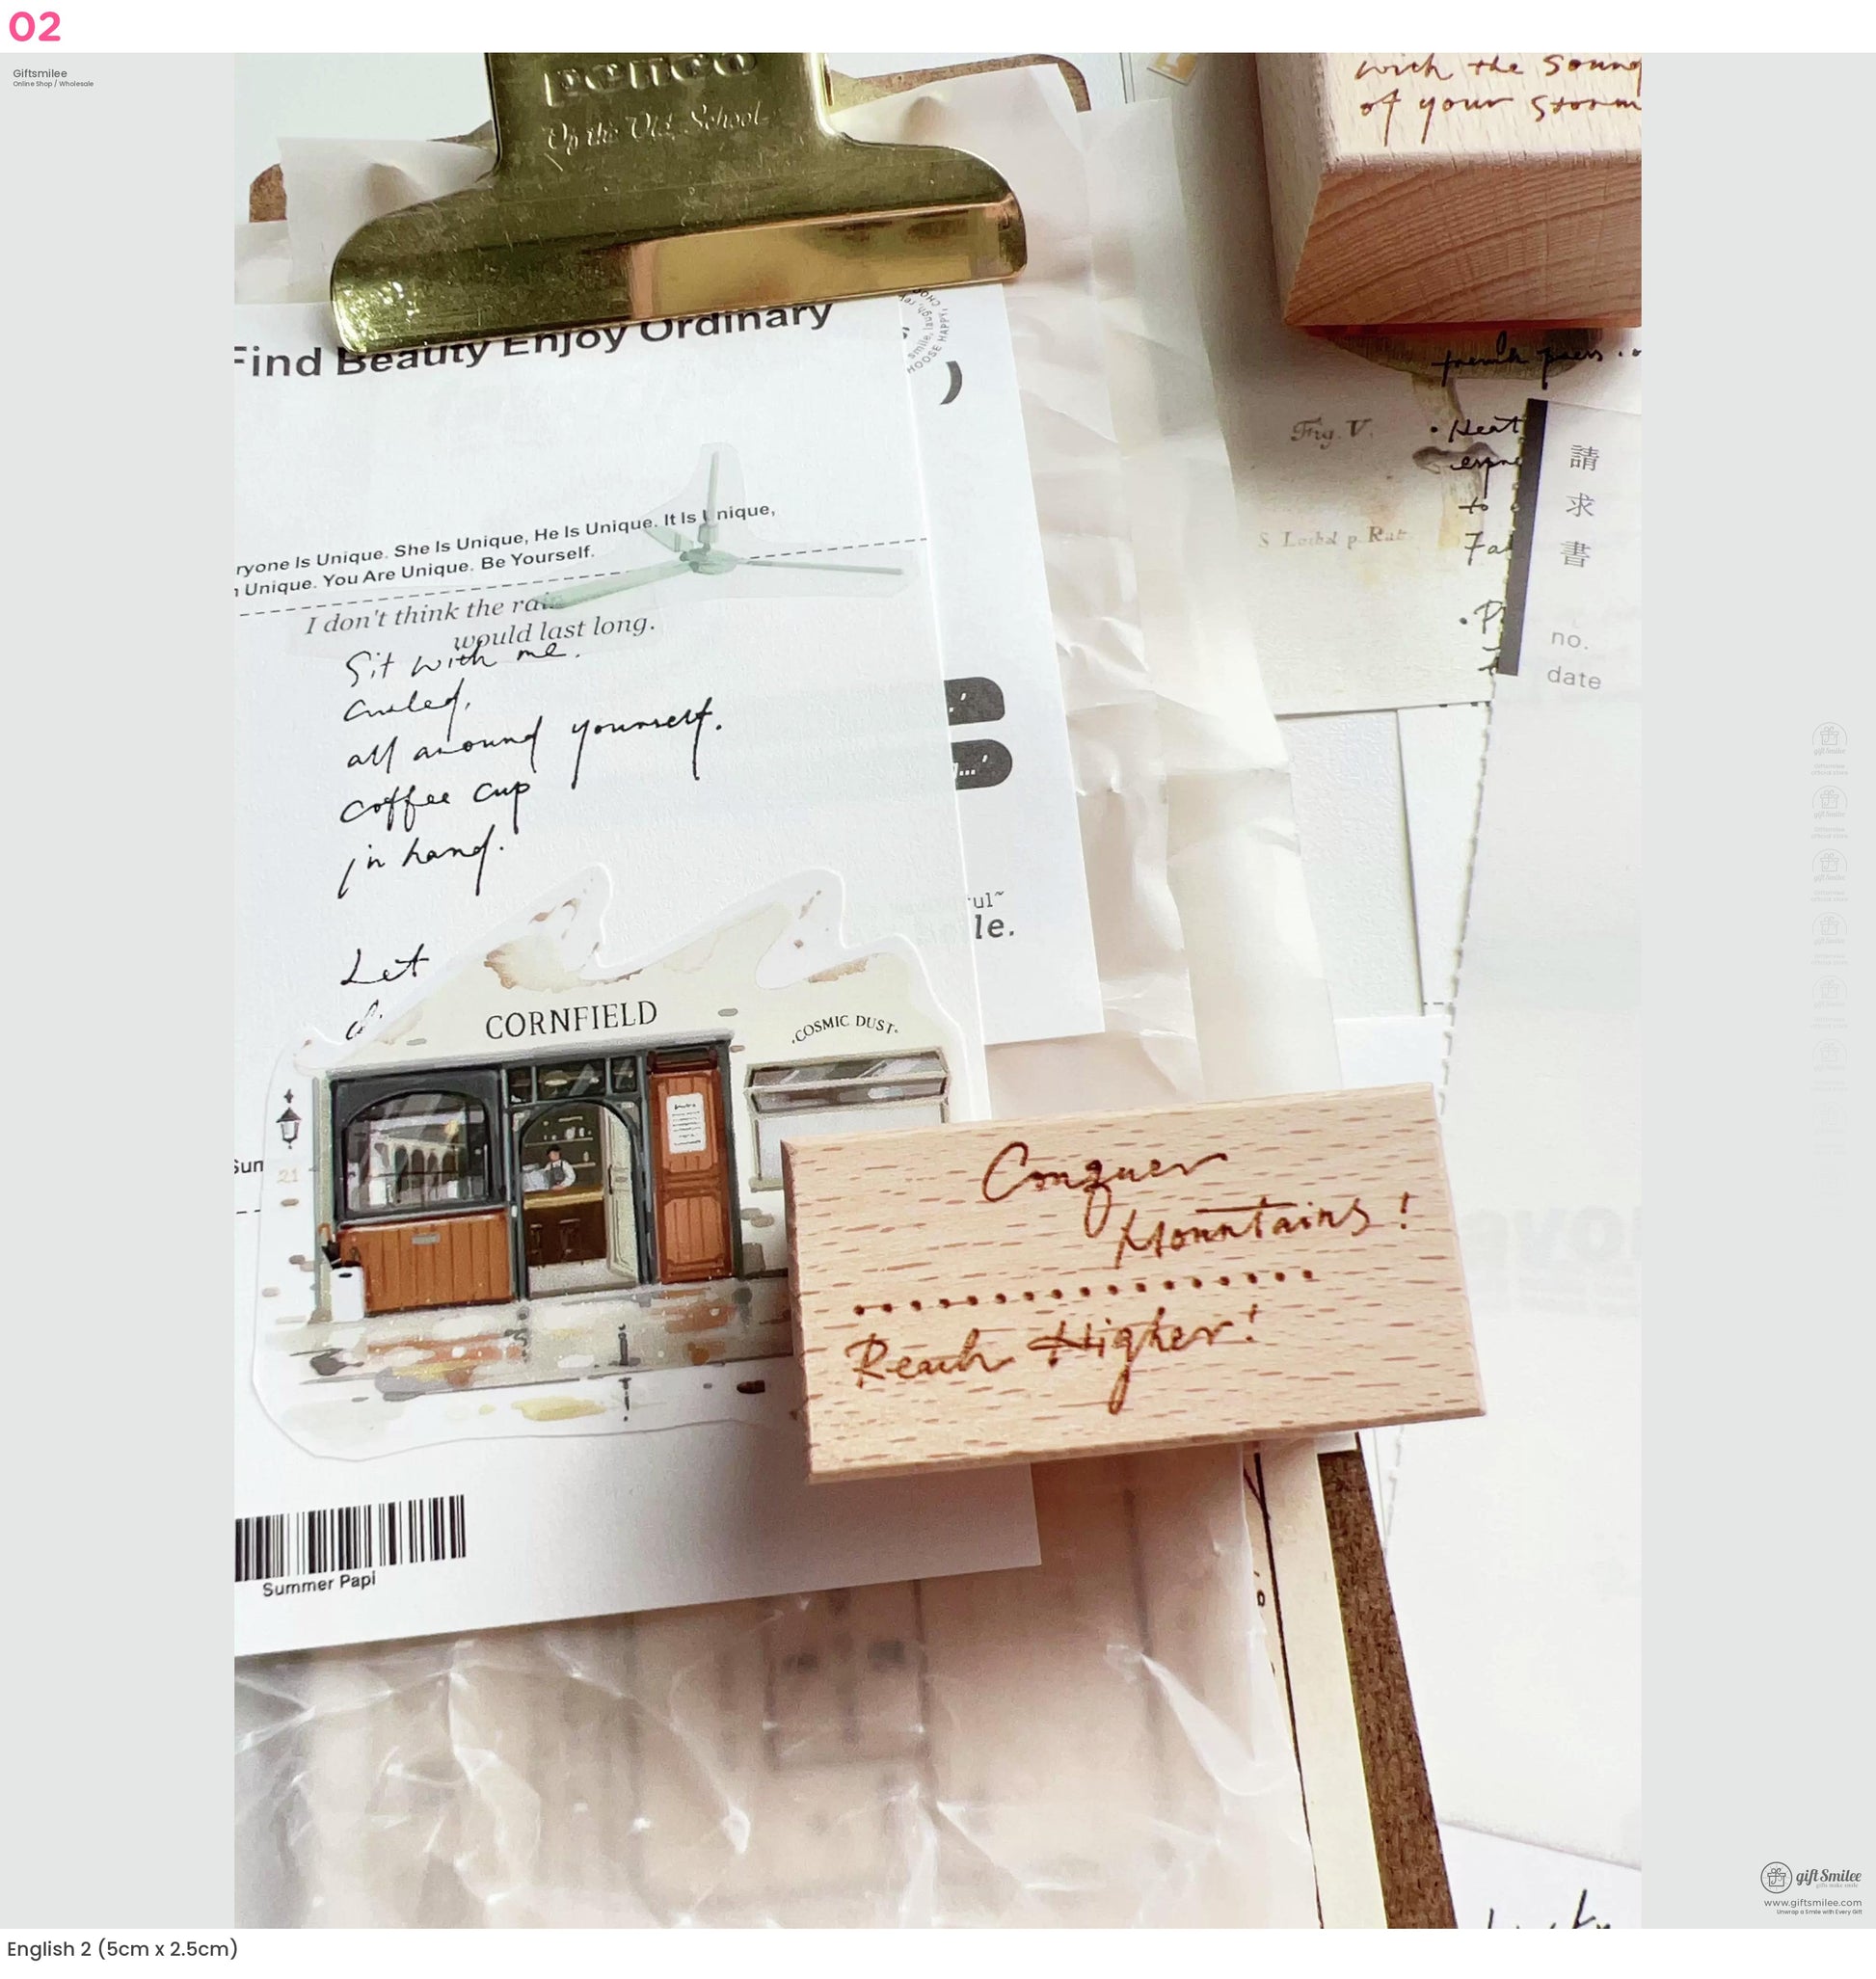 02
Giftsmilee
Online Shop / Wholesale
penco
Of the Old School
with the sound
of your storm
Find Beauty Enjoy Ordinary
smile, laugh,
HOOSE HAPPY,
)
french press
Fig. V.
• Heat
to
請
求
書
no.
date
ryone Is Unique. She Is Unique, He Is Unique. It Is Unique,
Unique. You Are Unique. Be Yourself.
I don't think the rain
would last long.
Sit with me.
all around yourself.
coffee cup
in hand.
le.
Let
CORNFIELD
COSMIC DUST
21
Sum
Conquer
Mountains!
Reach Higher!
Summer Papi
gift Smilee
www.giftsmilee.com
Unwrap a Smile with Every Gift
English 2 (5cm x 2.5cm)